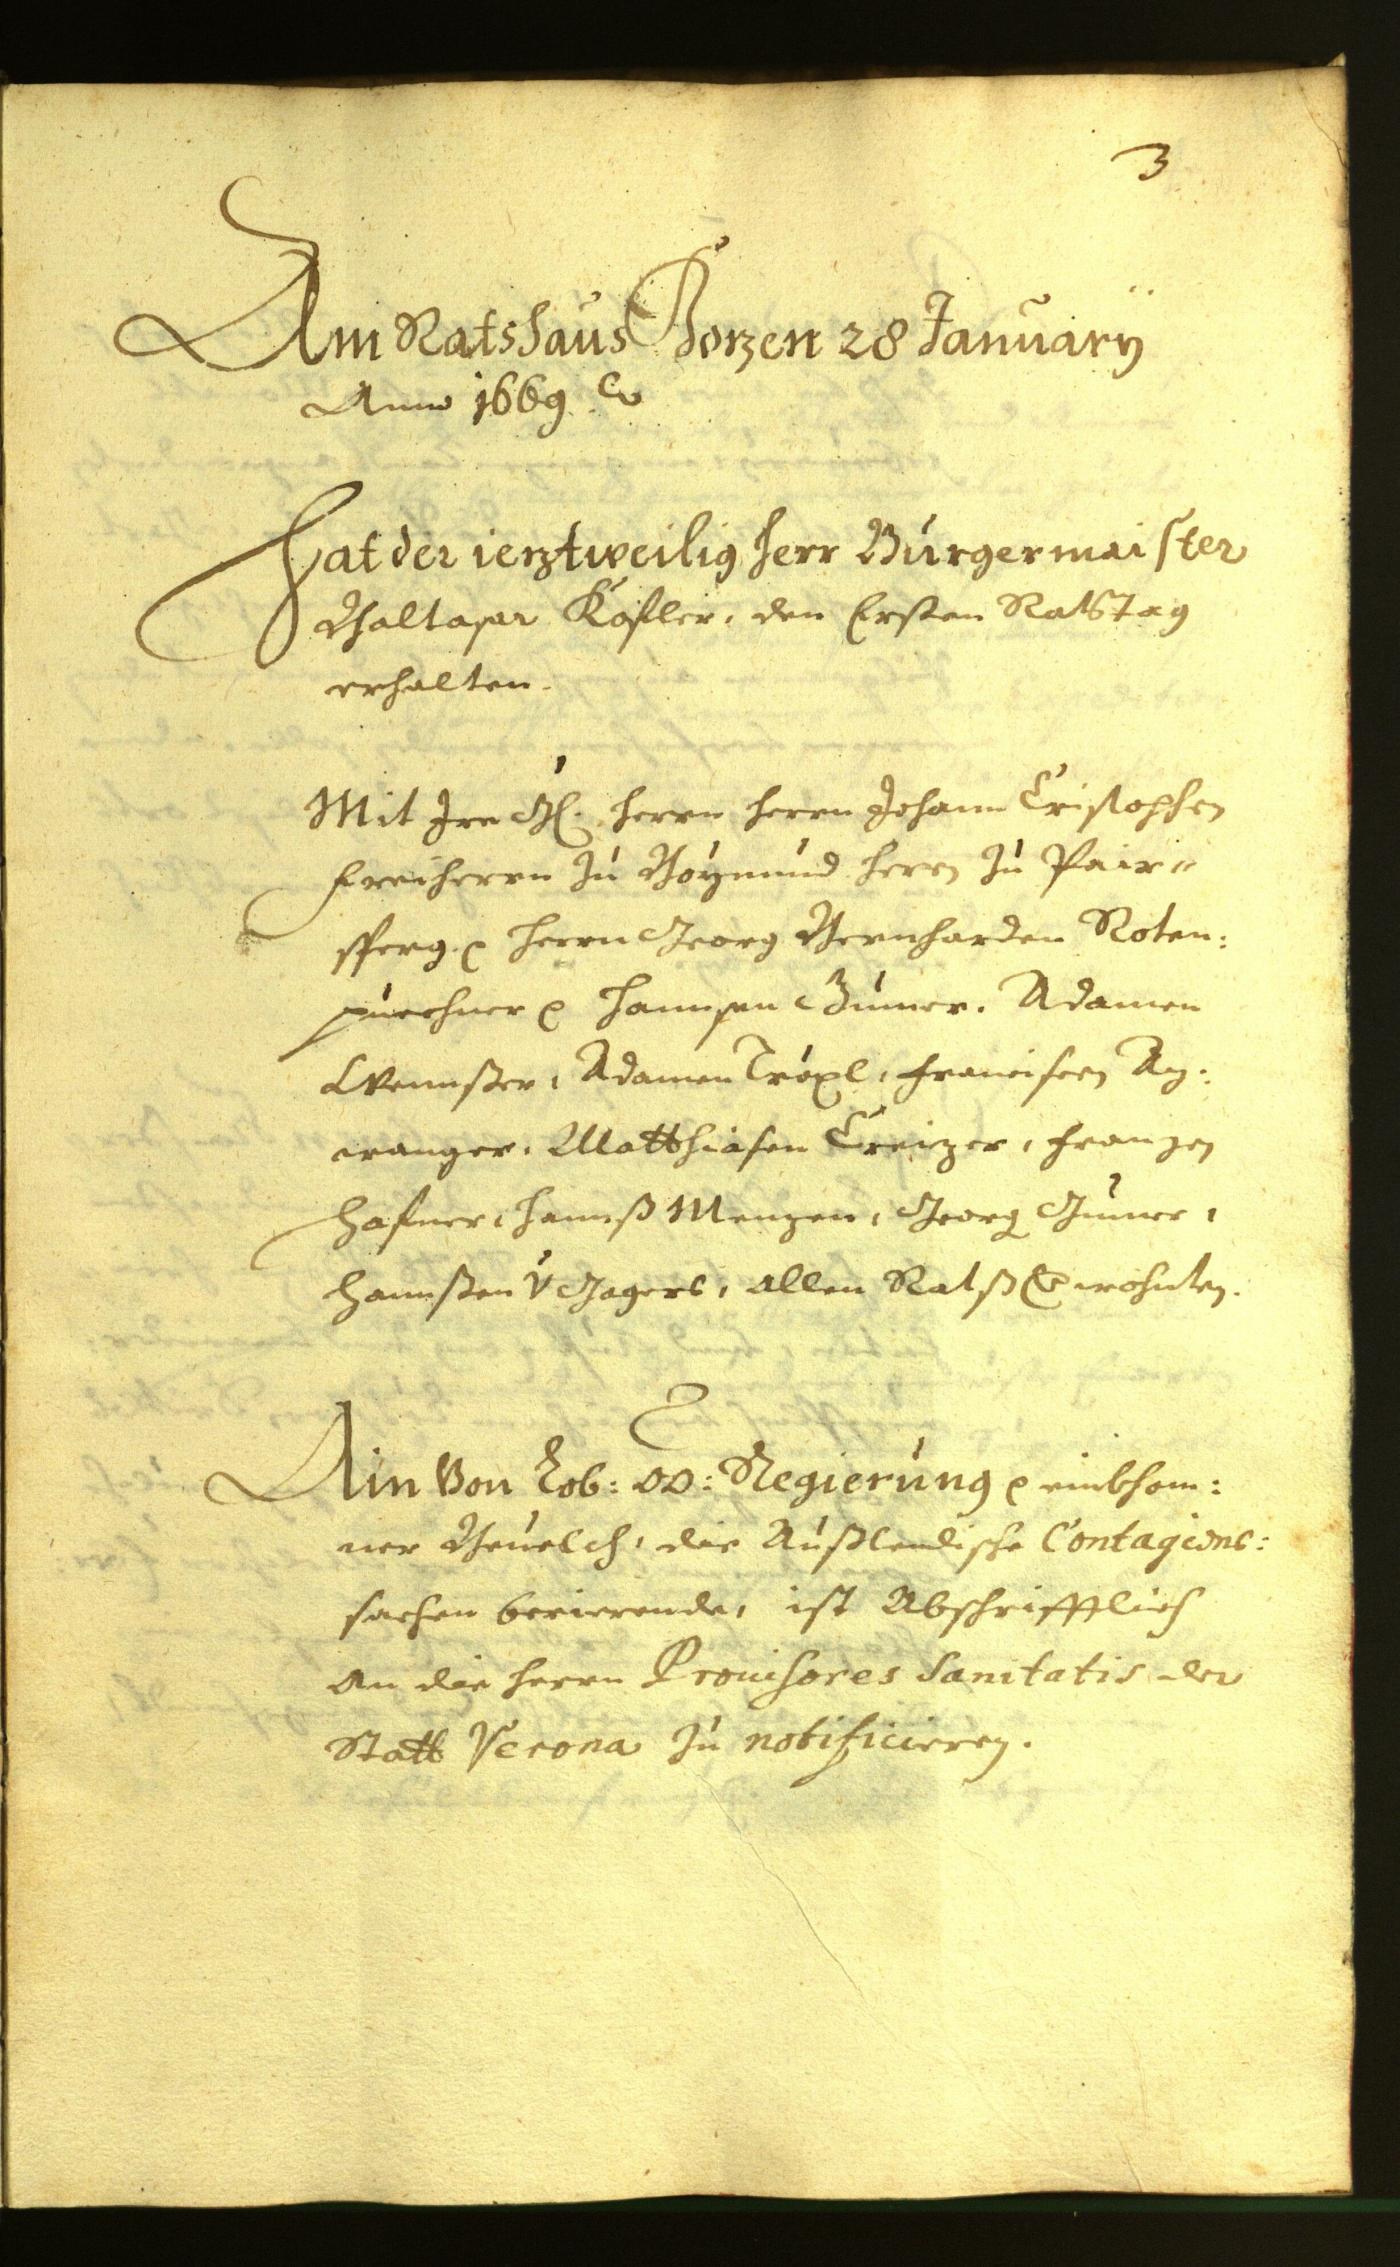 3
Am Ratshaus Bozen 28 January
Anno 1669
Hat der ieztweilig Herr Burgermaister
Balthasar Kofler, den Ersten Ratstag
erhalten.
Mit Ire Gl. Herrn Herrn Johann Cristophen
Freiherrn zu Boymund Herrn zu Pair„
sperg. Herrn Georg Bernharden Roten:
puecher Hannsen Zumer. Adamen
Wennser, Adamen Tröxl, Francisen An:
ranger, Matthiasen Creizer, Franzen
Hafner, Hannß Menzen, Georg Gumer,
Hannßen V Jagers, allen Ratß Gewohnten.
Ain Von Lob: OO: Regierung einkhom:
ner Beuelch, die Außlendische Contagions:
sachen berierende, ist Abschrifftlich
an die Herrn Prouisores Sanitatis der
Statt Verona zu notificieren.